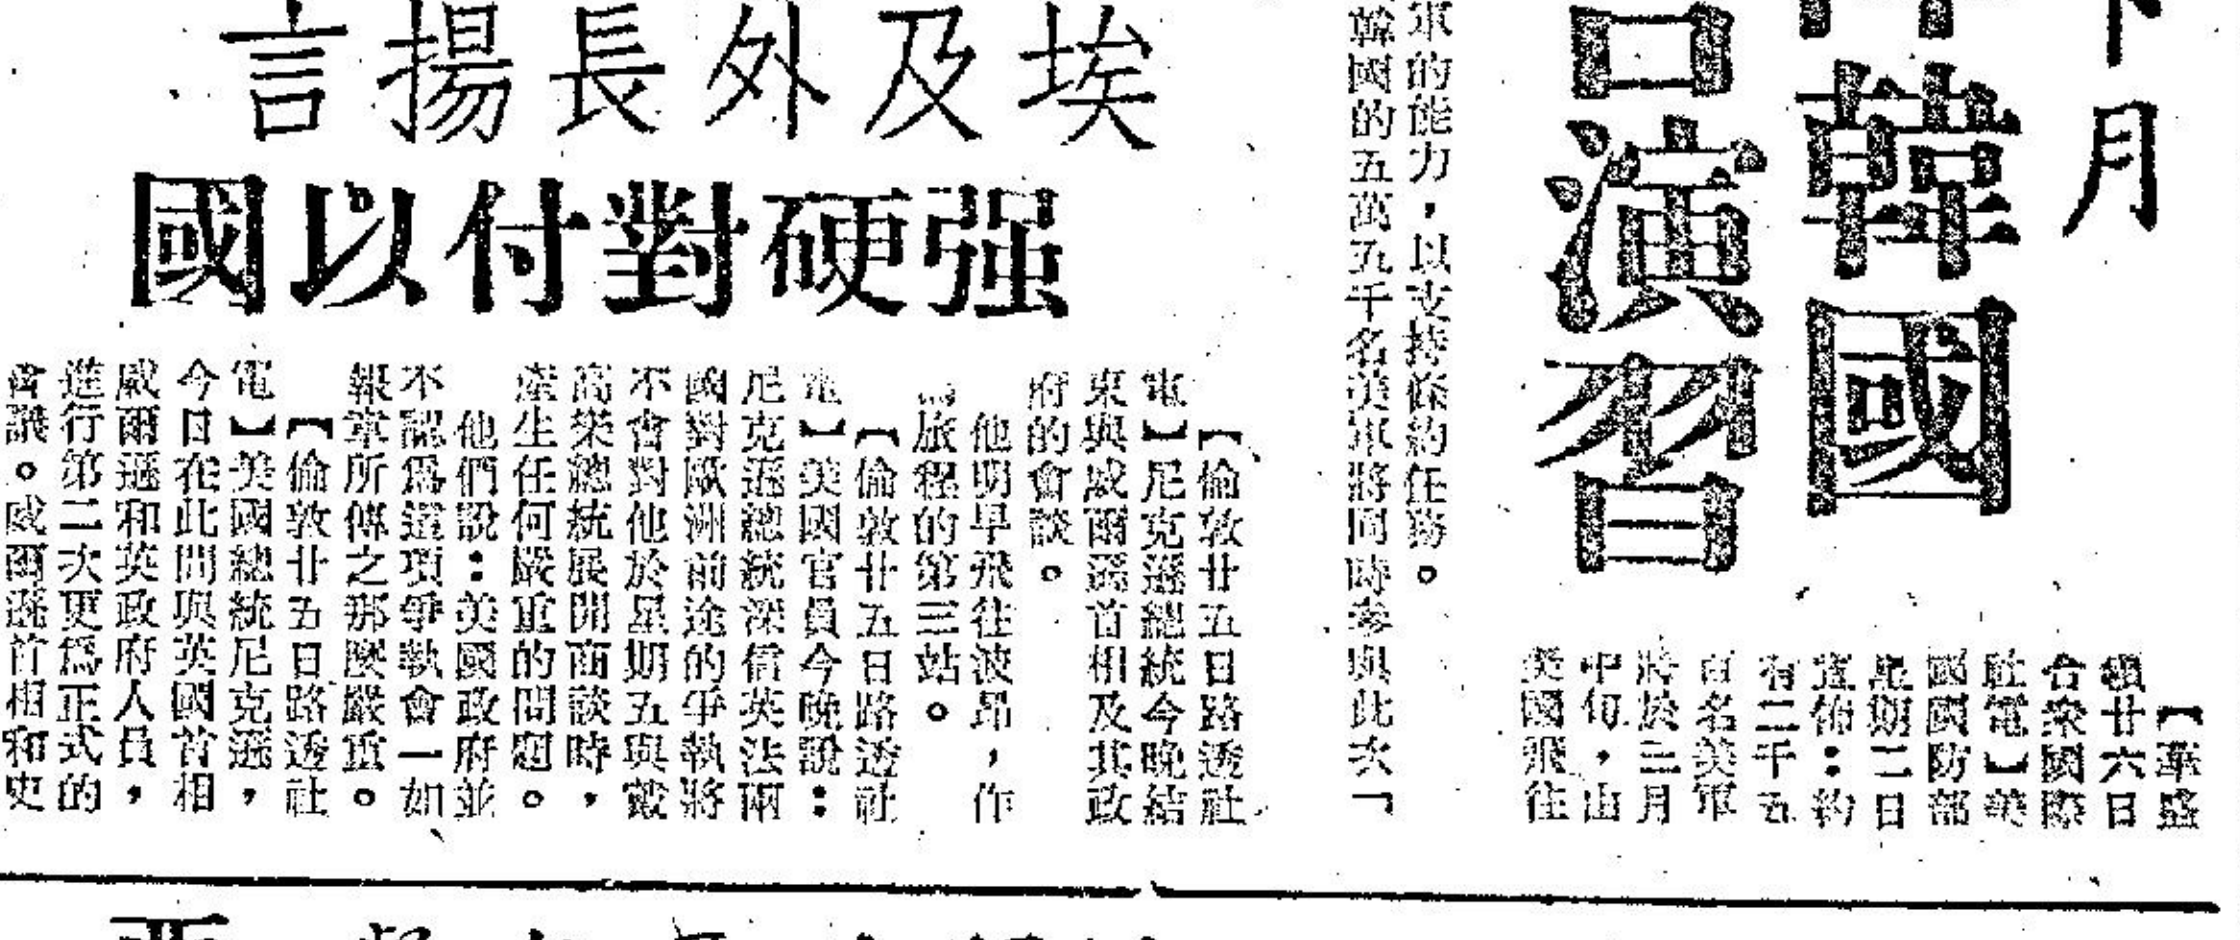 下月
韓國
演習
【華盛
頓廿六日
合衆國際
社電】美
國國防部
星期二日
宣佈：約
有二千五
百名美軍
將於三月
中旬，由
美國飛往
軍的能力，以支持條約任務。
韓國的五萬五千名美軍將同時參與此次「
埃及外長揚言
强硬對付以國
【倫敦廿五日路透社
電】尼克遜總統今晚結
束與威爾遜首相及其政
府的會談。
他明早飛往波昂，作
爲旅程的第三站。
【倫敦廿五日路透社
電】美國官員今晚說：
尼克遜總統深信英法兩
國對歐洲前途的爭執將
不會對他於星期五與戴
高樂總統展開面談時，
產生任何嚴重的問題。
他們說：美國政府並
不認爲這項爭執會一如
報章所傳之那麽嚴重。
【倫敦廿五日路透社
電】美國總統尼克遜，
今日在此間與英國首相
威爾遜和英政府人員，
進行第二次更爲正式的
會議。威爾遜首相和史